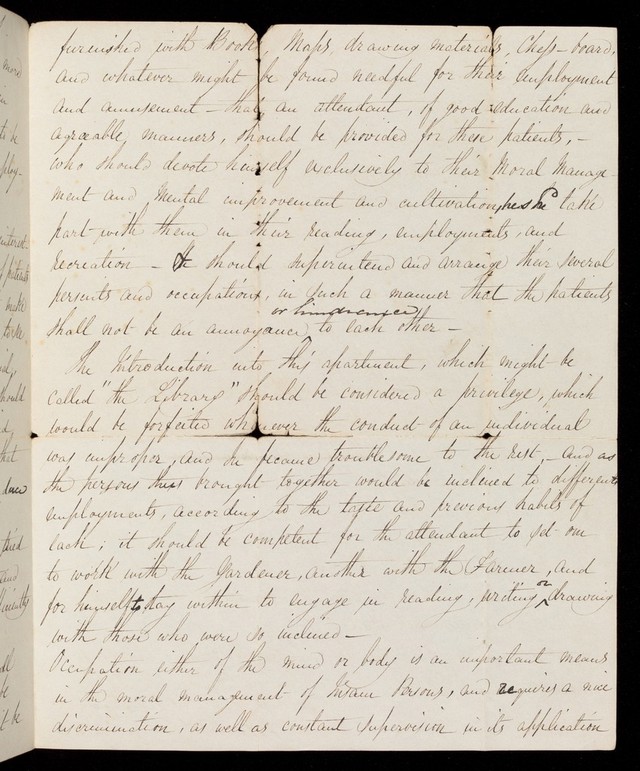 furnished with Books, Maps, drawing materials, Chess-board,
and whatever might be found needful for their employment
and amusement – that an attendant, of good education and
agreeable manners, should be provided for these patients, –
who should devote himself exclusively to their Moral Manage-
ment and Mental improvement and cultivation, he shd take
part with them in their reading, employments, and
recreation – & should superintend and arrange their several
persuits and occupations, in such a manner that the patients
or hindrance
shall not be an annoyance to each other –
The Introduction into this apartment, which might be
called "the Library" should be considered a privilege, which
would be forfeited whenever the conduct of an individual
was improper, and he became troublesome to the rest, – and as
the persons thus brought together would be inclined to different
employments, according to the taste and previous habits of
each; it should be competent for the attendant to set one
to work with the Gardener, another with the Farmer, and
for himself to stay within to engage in reading, writing or drawing
with those who were so inclined –
Occupation either of the mind or body is an important means
in the moral management of Insane Persons, and requires a nice
discrimination, as well as constant supervision in its application